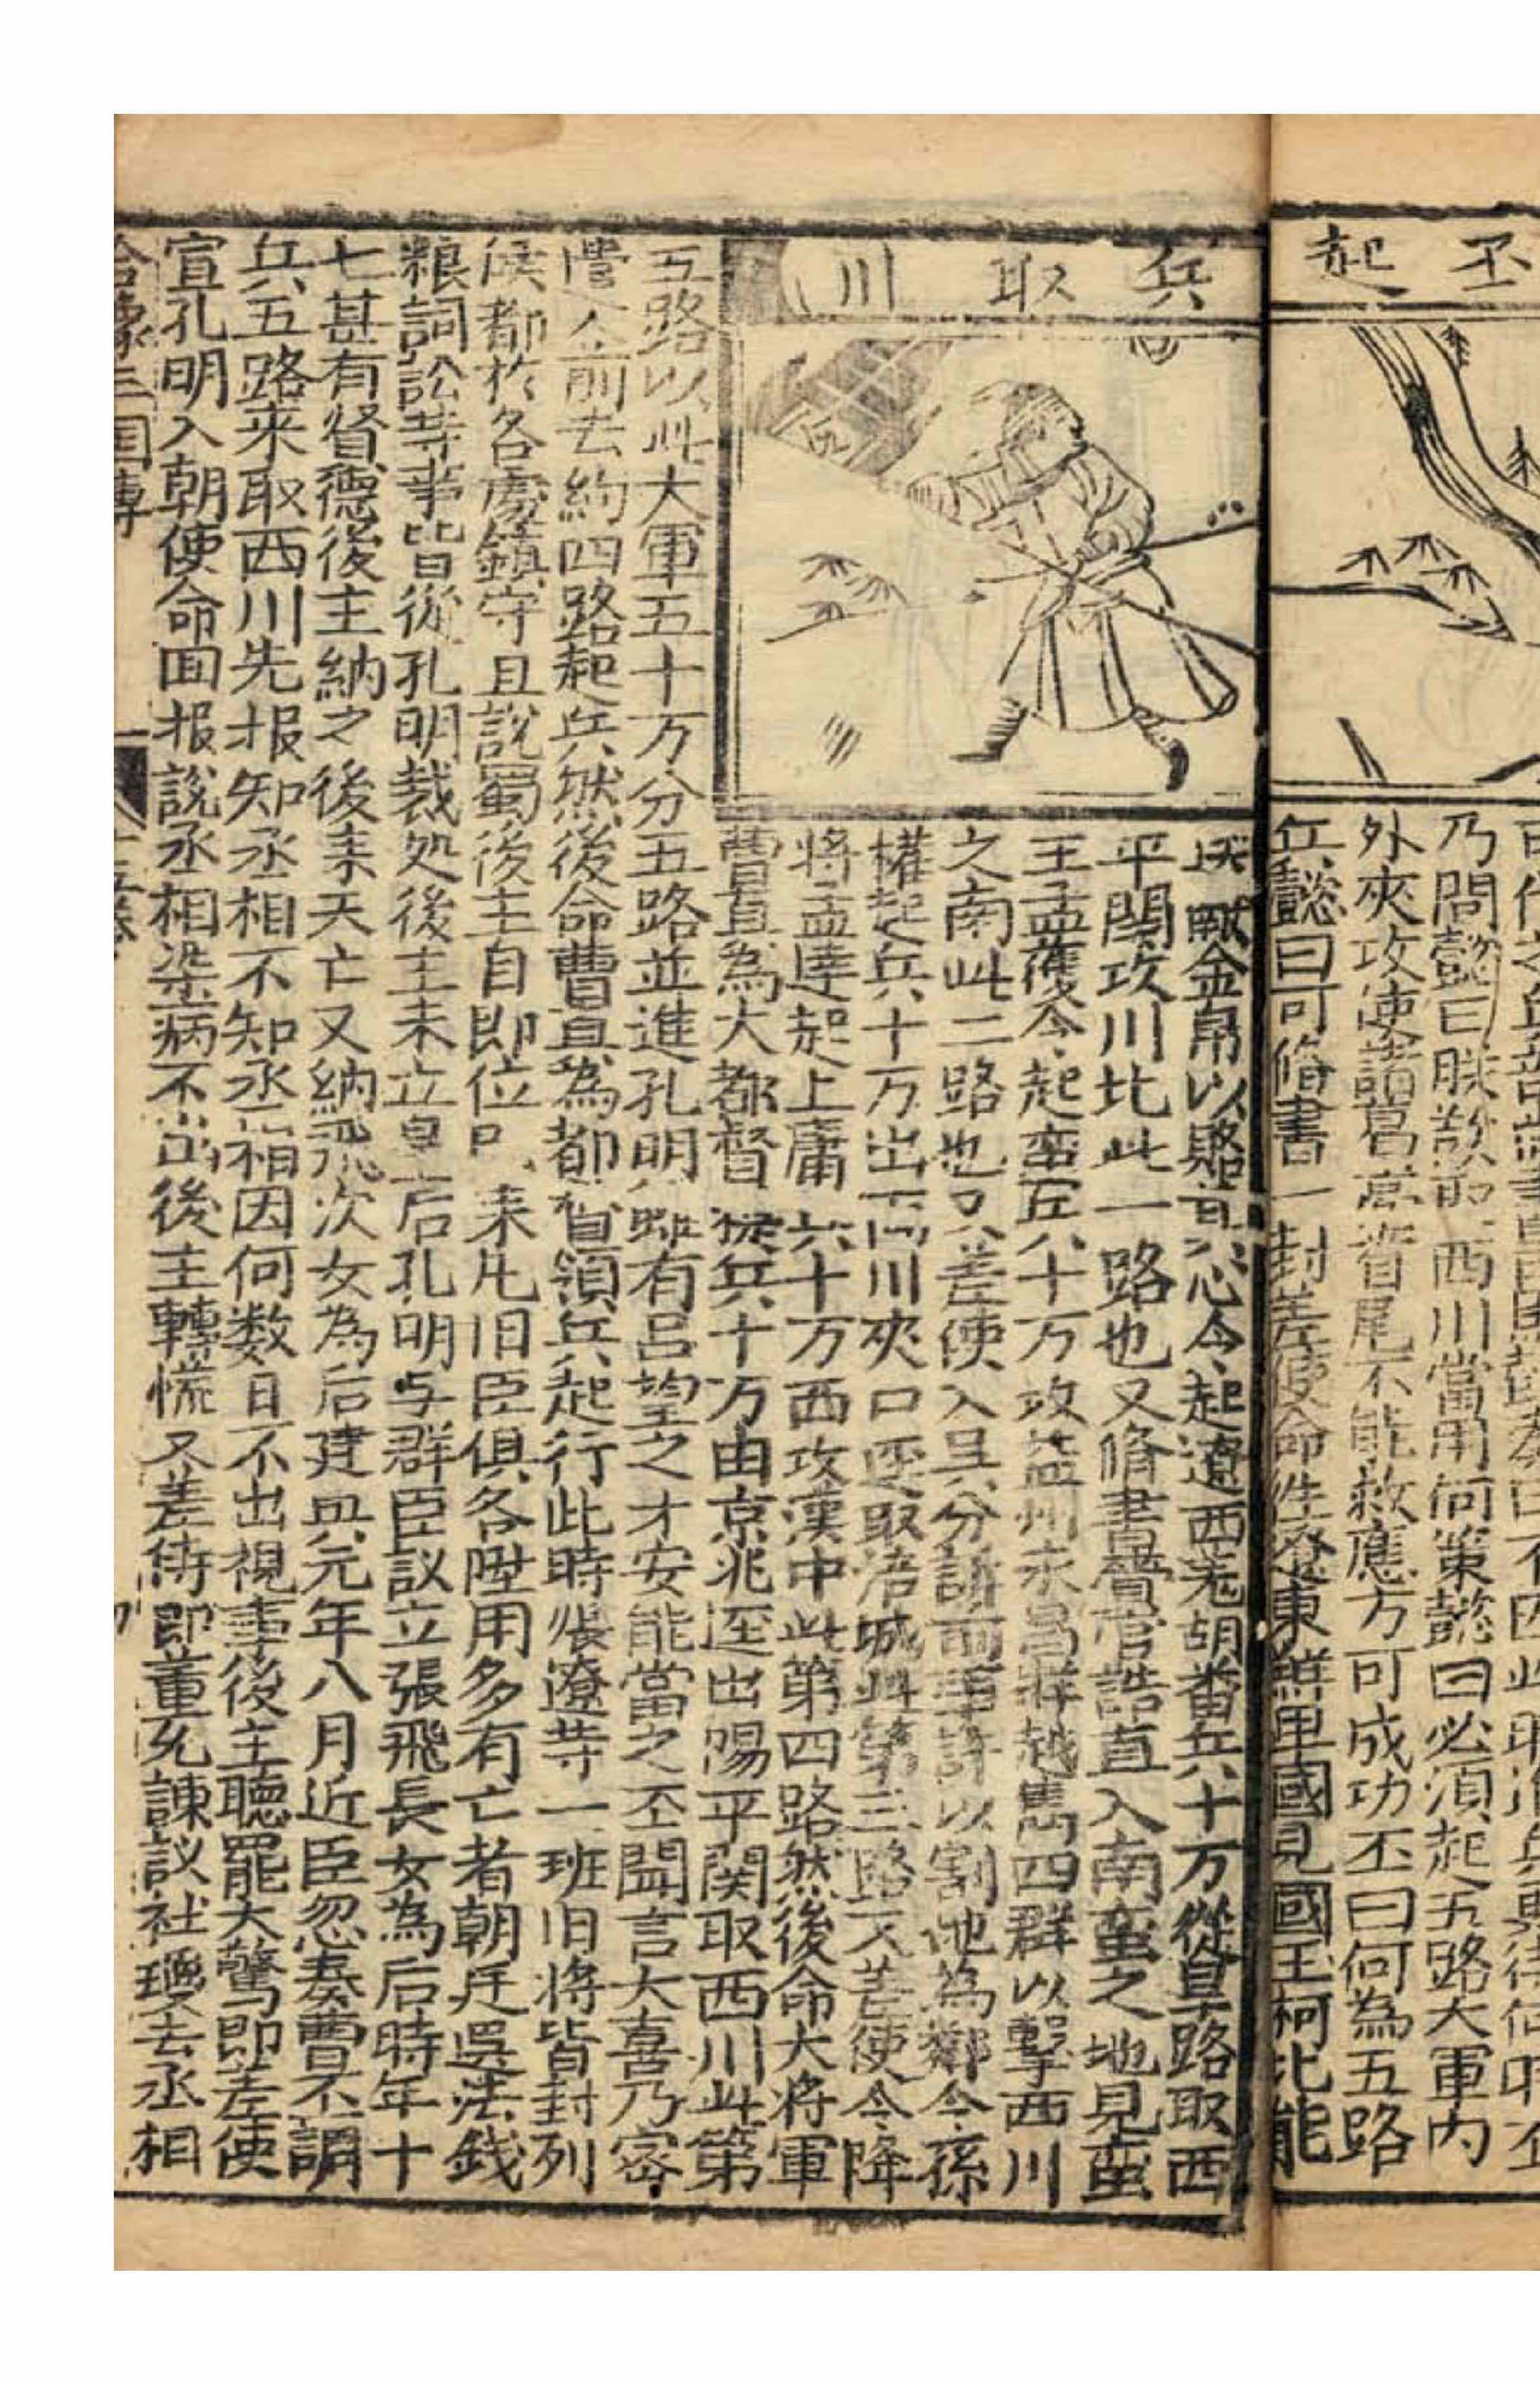 丕起
乃問懿曰朕欲西川當用何策懿曰必須起五路大軍內
外夾攻使諸葛亮首尾不能救應方可成功丕曰何為五路
兵懿曰可脩書一封差使命往遼東鮮卑國見國王柯比能
兵取川
金帛以賂其心令起遼西羌胡番兵十万從旱路取西
平関攻川比此一路也又脩書賫官誥直入南蛮之地見蛮
王孟獲令起蛮兵十万攻益州永昌牂越嶲四群以擊西川
之南此二路也又差使入吴分訴前事許以割地為鄰令孫
權起兵十万出西川夾口逕取涪城此第三路又差使令降
将孟達起上庸六十万西攻漢中此第四路然後命大将軍
曹真為大都督 兵十万由京兆逕出陽平関取西川此第
五路以此大軍五十万分五路並進孔明雖有吕望之才安能當之丕聞言大喜乃密
遣 前去約四路起兵然後命曹真為都督領兵起行此時張遼䒭一班旧将皆封列
侯都扵各處鎮守且説蜀後主自即位 来凢旧臣俱各陞用多有亡者朝廷選法錢
粮詞訟䒭事皆從孔明裁処後主未立皇后孔明与群臣議立張飛長女為后時年十
七甚有賢德後主納之後来夭亡又納飛次女為后建興元年八月近臣忽奏曹丕調
兵五路来取西川先报知丞相不知丞相因何数日不出視事後主聽罷大驚即差使
宣孔明入朝使命回报說丞相染病不出後主轉慌又差侍郎董允諫議杜瓊去丞相
三国傳